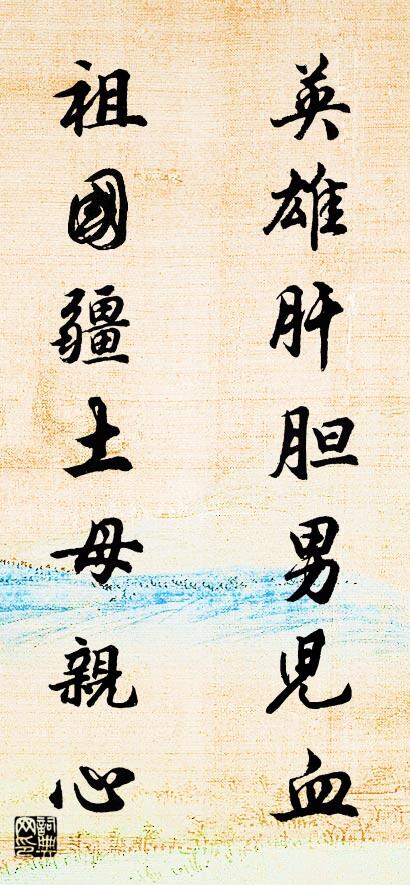 英雄肝胆男児血
祖國疆土母親心
詞典
网印